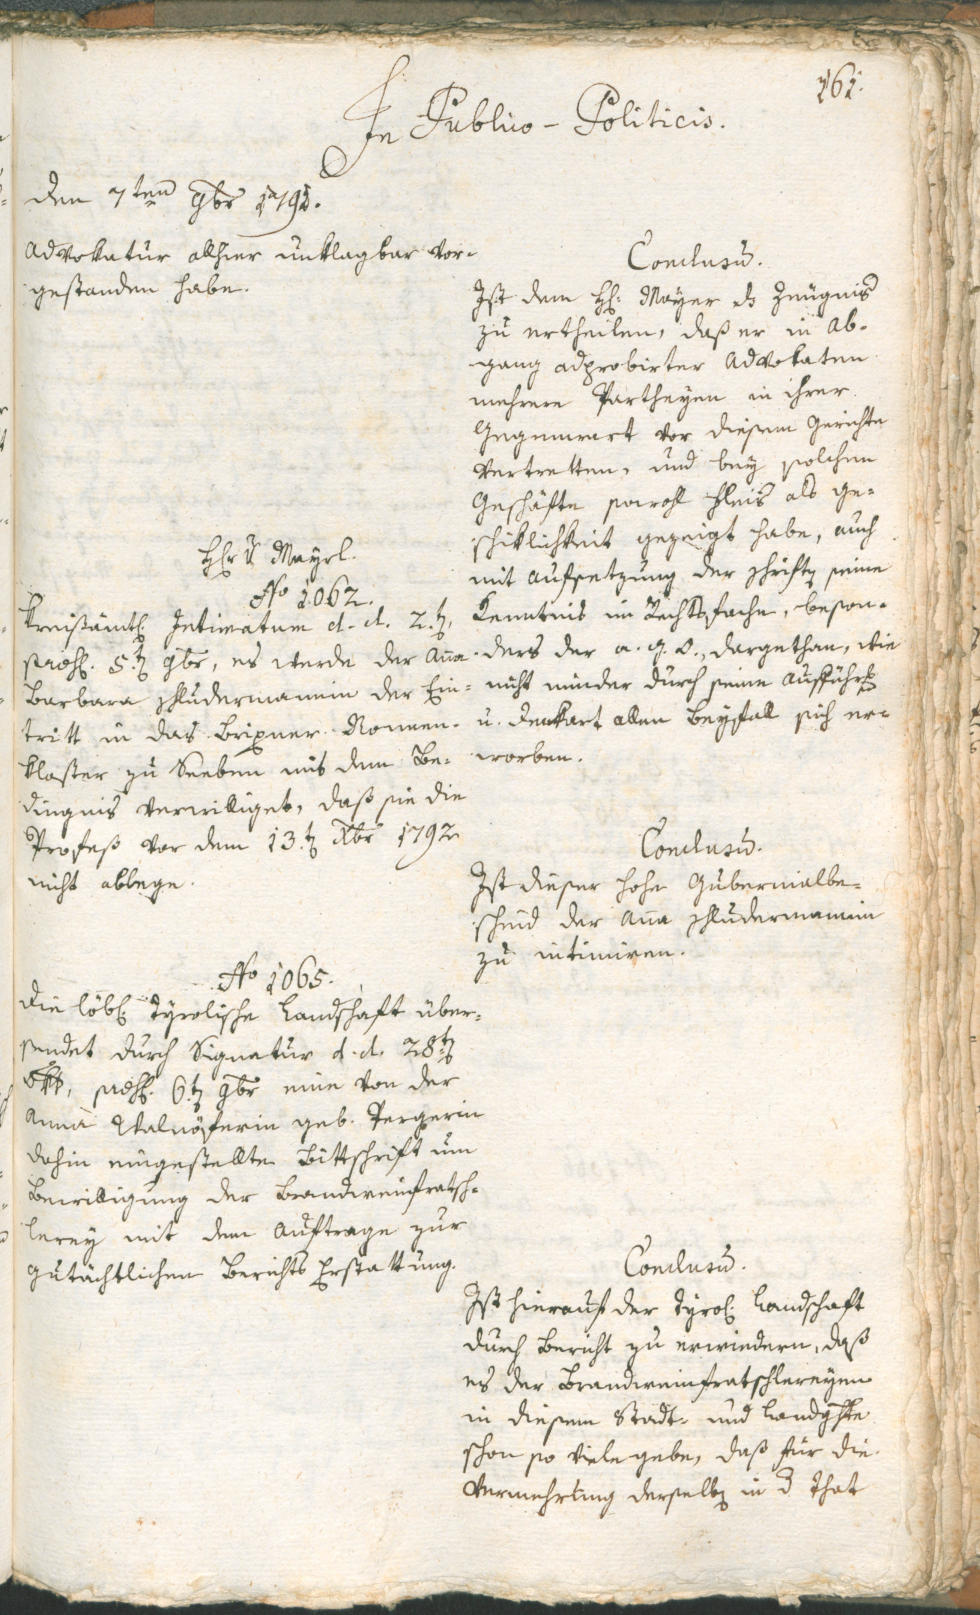 161.
In Publico-Politicis.
den 7ten 9br 1791.
Advokatur allhier unklagbar vor-
gestanden habe.
Conclusū.
Ist dem H: Mayer ds Zeugnis
zu ertheilen, daß er in Ab-
gang adprobirter Advokaten
mehrere Partheyen in ihrer
Gegenwart vor diesem Gerichte
vertretten, und bey solchen
Geschäfte sowohl Fleis als ge-
schiklichkeit gezeigt habe, auch
mit Aufsetzung der schriften seine
Kenntnis im Rechtsfache, beson-
ders der a. g. O., dargethan, wie
nicht minder durch seine Aufführ
u. denkart allen Beyfall sich er-
worben.
Mayrl.
No 1062.
Kreisämtl: Intimatum d. d. 2.t,
praes. 5.t 9br, es werde der Aña
Barbara schludermannin der Ein-
tritt in das Brixner Nonnen-
kloster zu Seeben mit dem Be-
dingnis verwilliget, daß sie die
Profeß vor dem 13.t Xbr 1792
nicht ablege.
Conclusū.
Ist dieser hohe Gubernialbe-
scheid der Aña schludermannin
zu intimiren.
No 1065.
die löbl: Tyrolische Landschaft über-
sendet durch Signatur d. d. 28t
Okt, praes. 6.t 9br eine von der
Anna Walnöferin geb. Pergerin
dahin eingestellte Bittschrift um
Bewilligung der Brandweinfratsch-
lerey mit dem Auftrage zur
gutächtlichen Berichts Erstattung.
Conclusū.
Ist hierauf der Tyrol: Landschaft
durch Bericht zu erwiedern, daß
es der Brandweinfratschlereyen
in diesem Stadt- und Landghte
schon so viele gebe, daß für die
Vermehrung derselb in d That